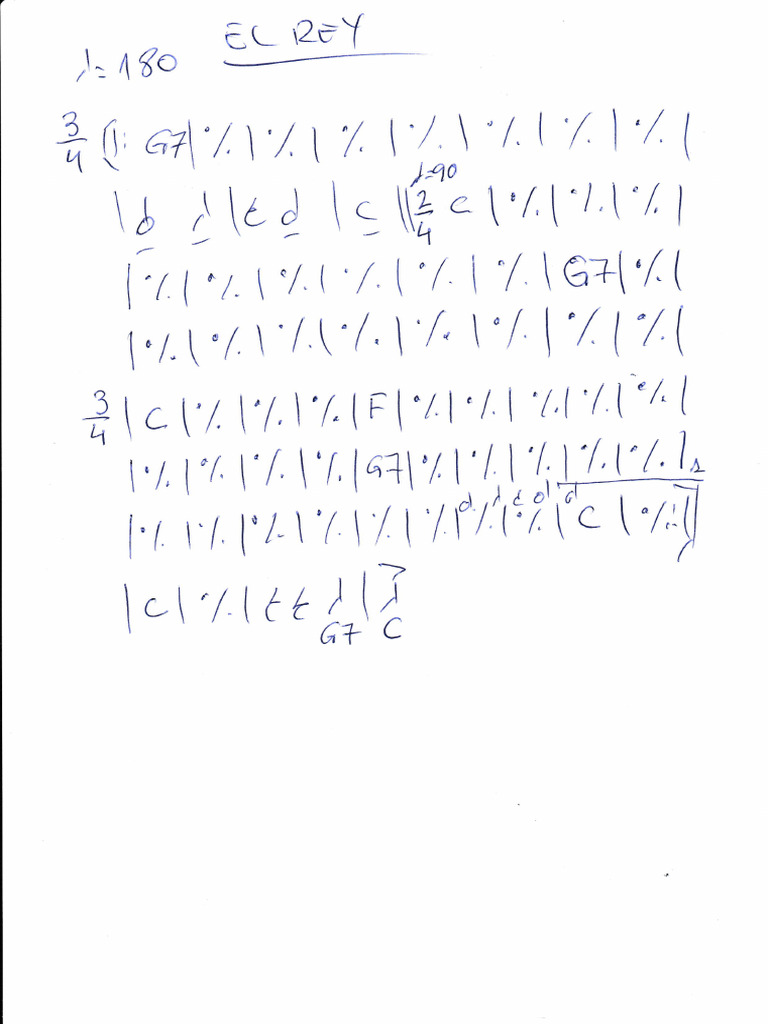 EL REY
♩=180
3/4 |: G7 | % | % | % | % | % | % | % |
| 𝅗𝅥 ♩ | 𝄽 𝅗𝅥 | C || ♩=90 2/4 C | % | % | % |
| % | % | % | % | % | % | G7 | % |
| % | % | % | % | % | % | % | % |
3/4 | C | % | % | % | F | % | % | % | % | % |
| % | % | % | % | G7 | % | % | % | % | % |
| % | % | % | % | % | % | % | % | C | % :|
| C | % | 𝄽 𝄽 ♩ | ♩
G7 C